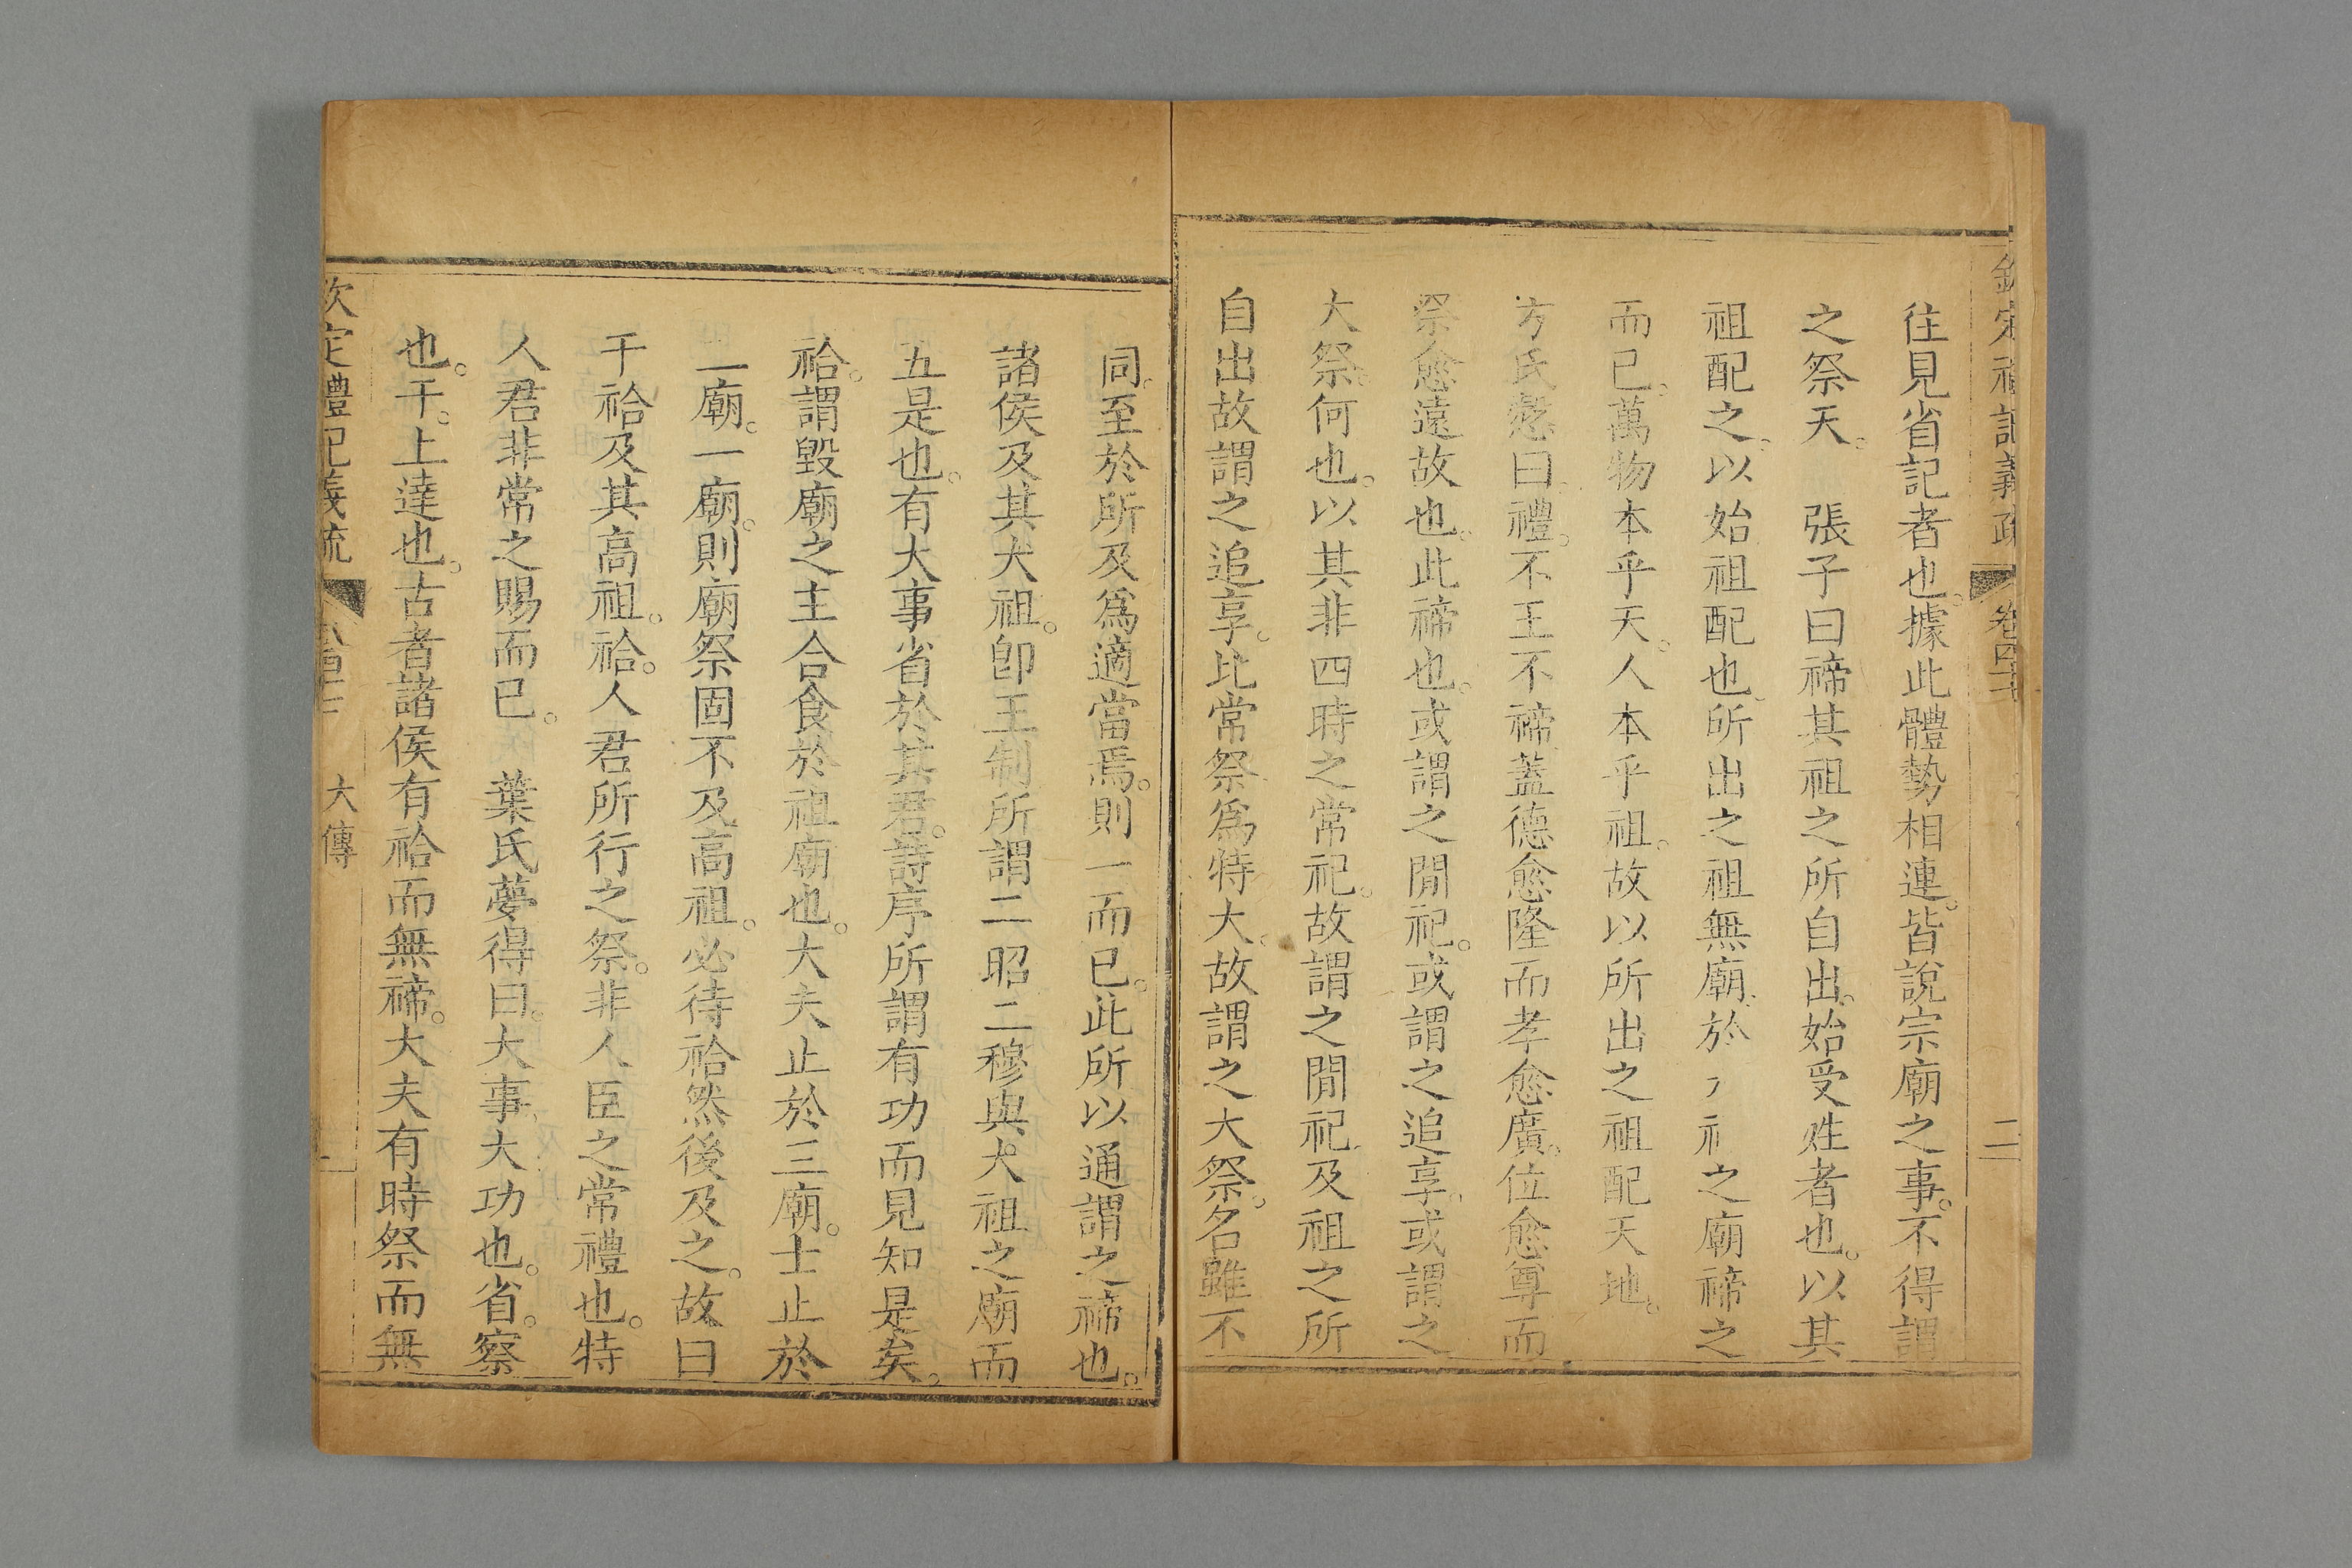 欽定禮記義疏 卷四十七 二
往見省記者也。據此體勢相連。皆說宗廟之事。不得謂
之祭天。 張子曰禘其祖之所自出。始受姓者也。以其
祖配之。以始祖配也。所出之祖無廟。於 之廟禘之
而已。萬物本乎天。人本乎祖。故以所出之祖配天地。
方氏慤曰。禮。不王不禘。蓋德愈隆而孝愈廣。位愈尊而
祭愈遠故也。此禘也。或謂之閒祀。或謂之追享。或謂之
大祭。何也。以其非四時之常祀。故謂之閒祀。及祖之所
自出故謂之追享。比常祭為特大。故謂之大祭。名雖不
同。至於所及為適當焉。則一而已。此所以通謂之禘也。
諸侯及其大祖。卽王制所謂二昭二穆與大祖之廟而
五是也。有大事省於其君。詩序所謂有功而見知是矣。
祫。謂毀廟之主合食於祖廟也。大夫止於三廟。士止於
一廟。一廟。則廟祭固不及高祖。必待祫然後及之。故曰
干祫及其高祖。祫。人君所行之祭。非人臣之常禮也。特
人君非常之賜而已。 葉氏夢得曰。大事。大功也。省。察
也。干。上達也。古者諸侯有祫而無禘。大夫有時祭而無
欽定禮記義疏 大傳